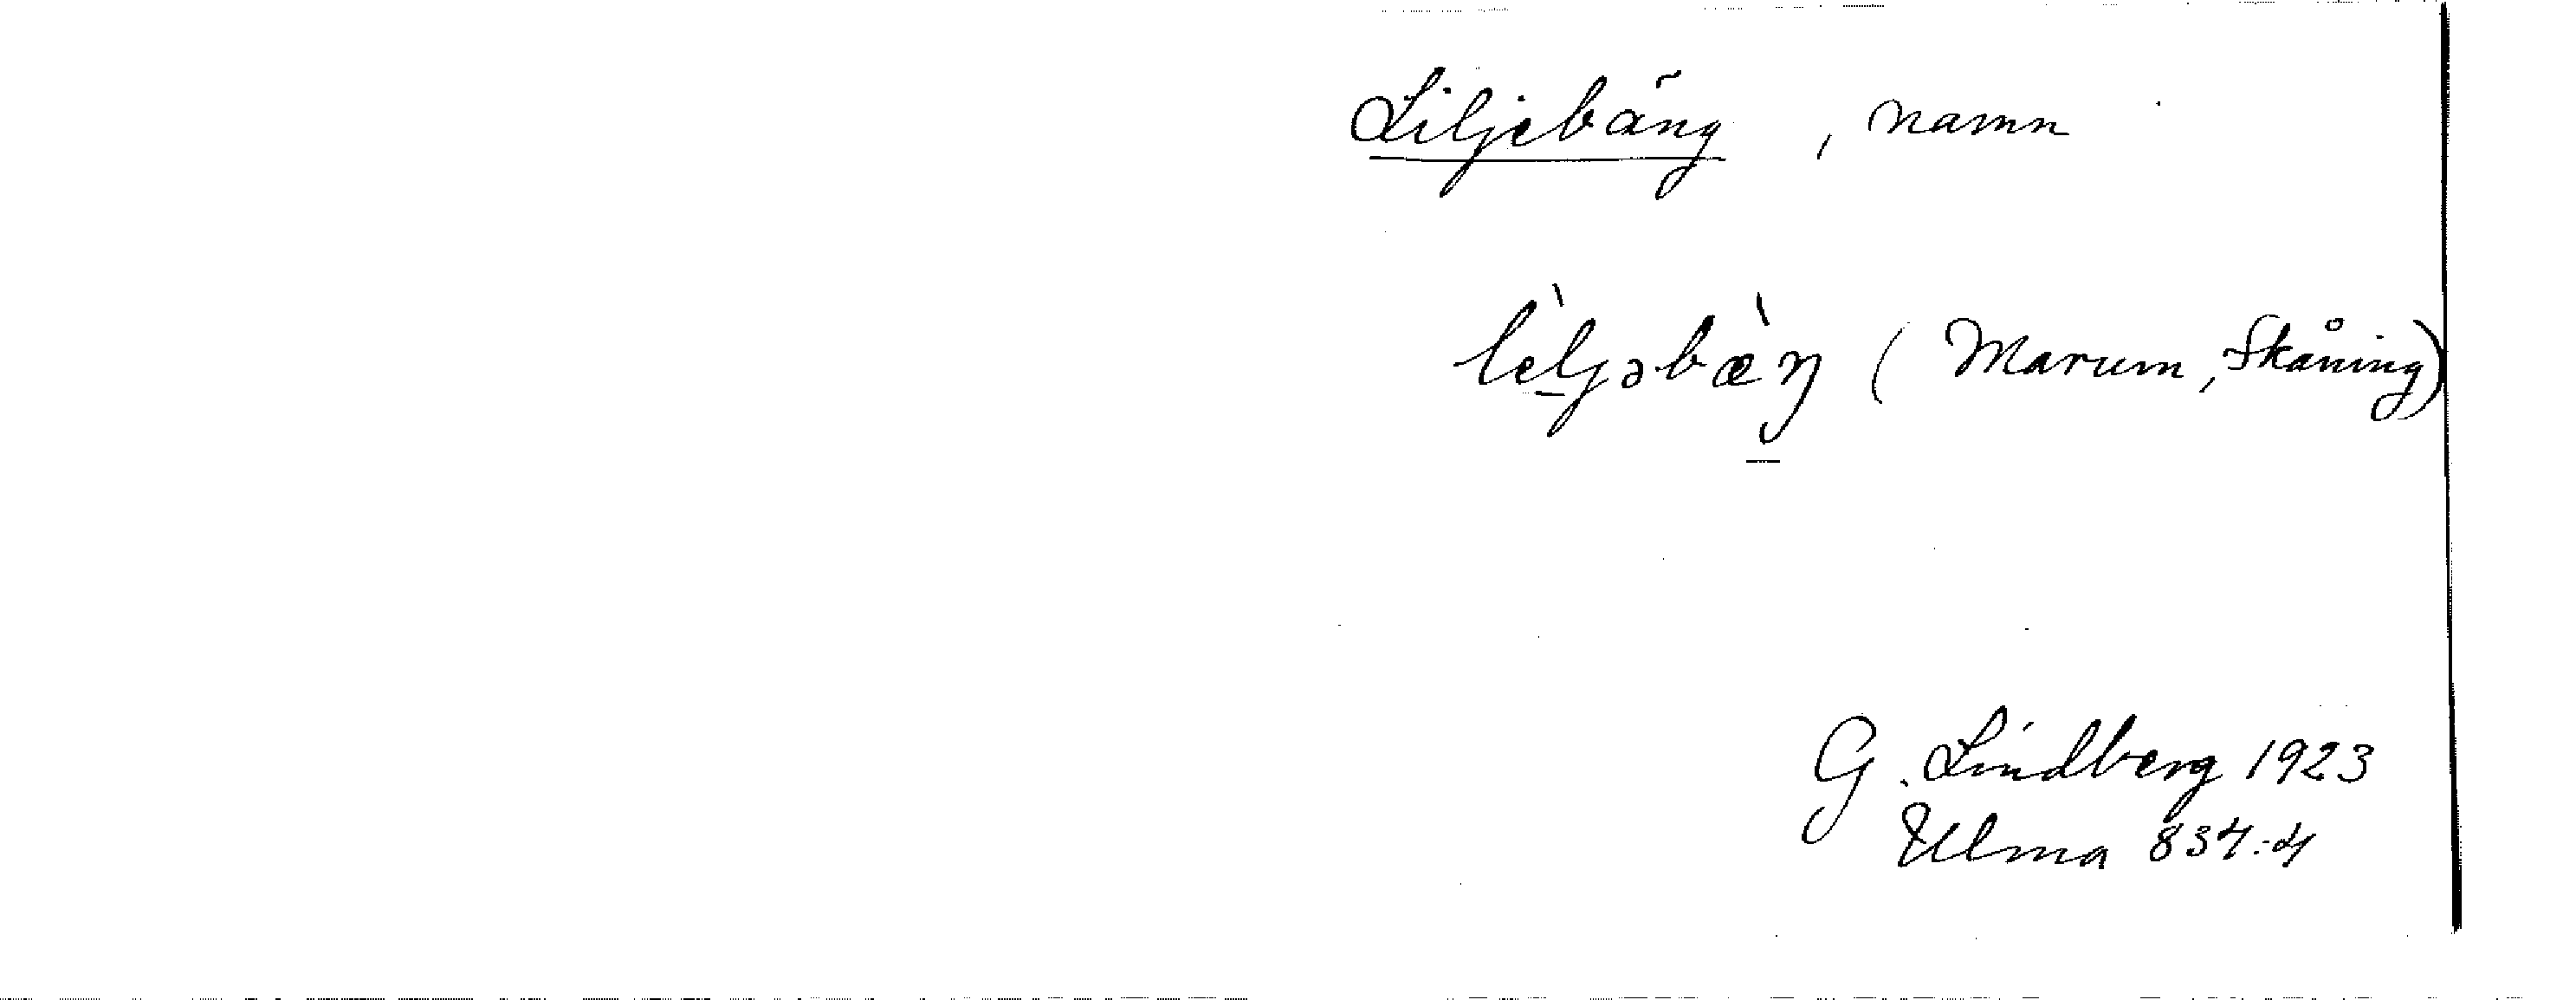 Liljebäng, namn
lèl̠jəbæ̀ŋ̠ (Marum, Skåning)
G. Lindberg 1923
Ulma 834:4